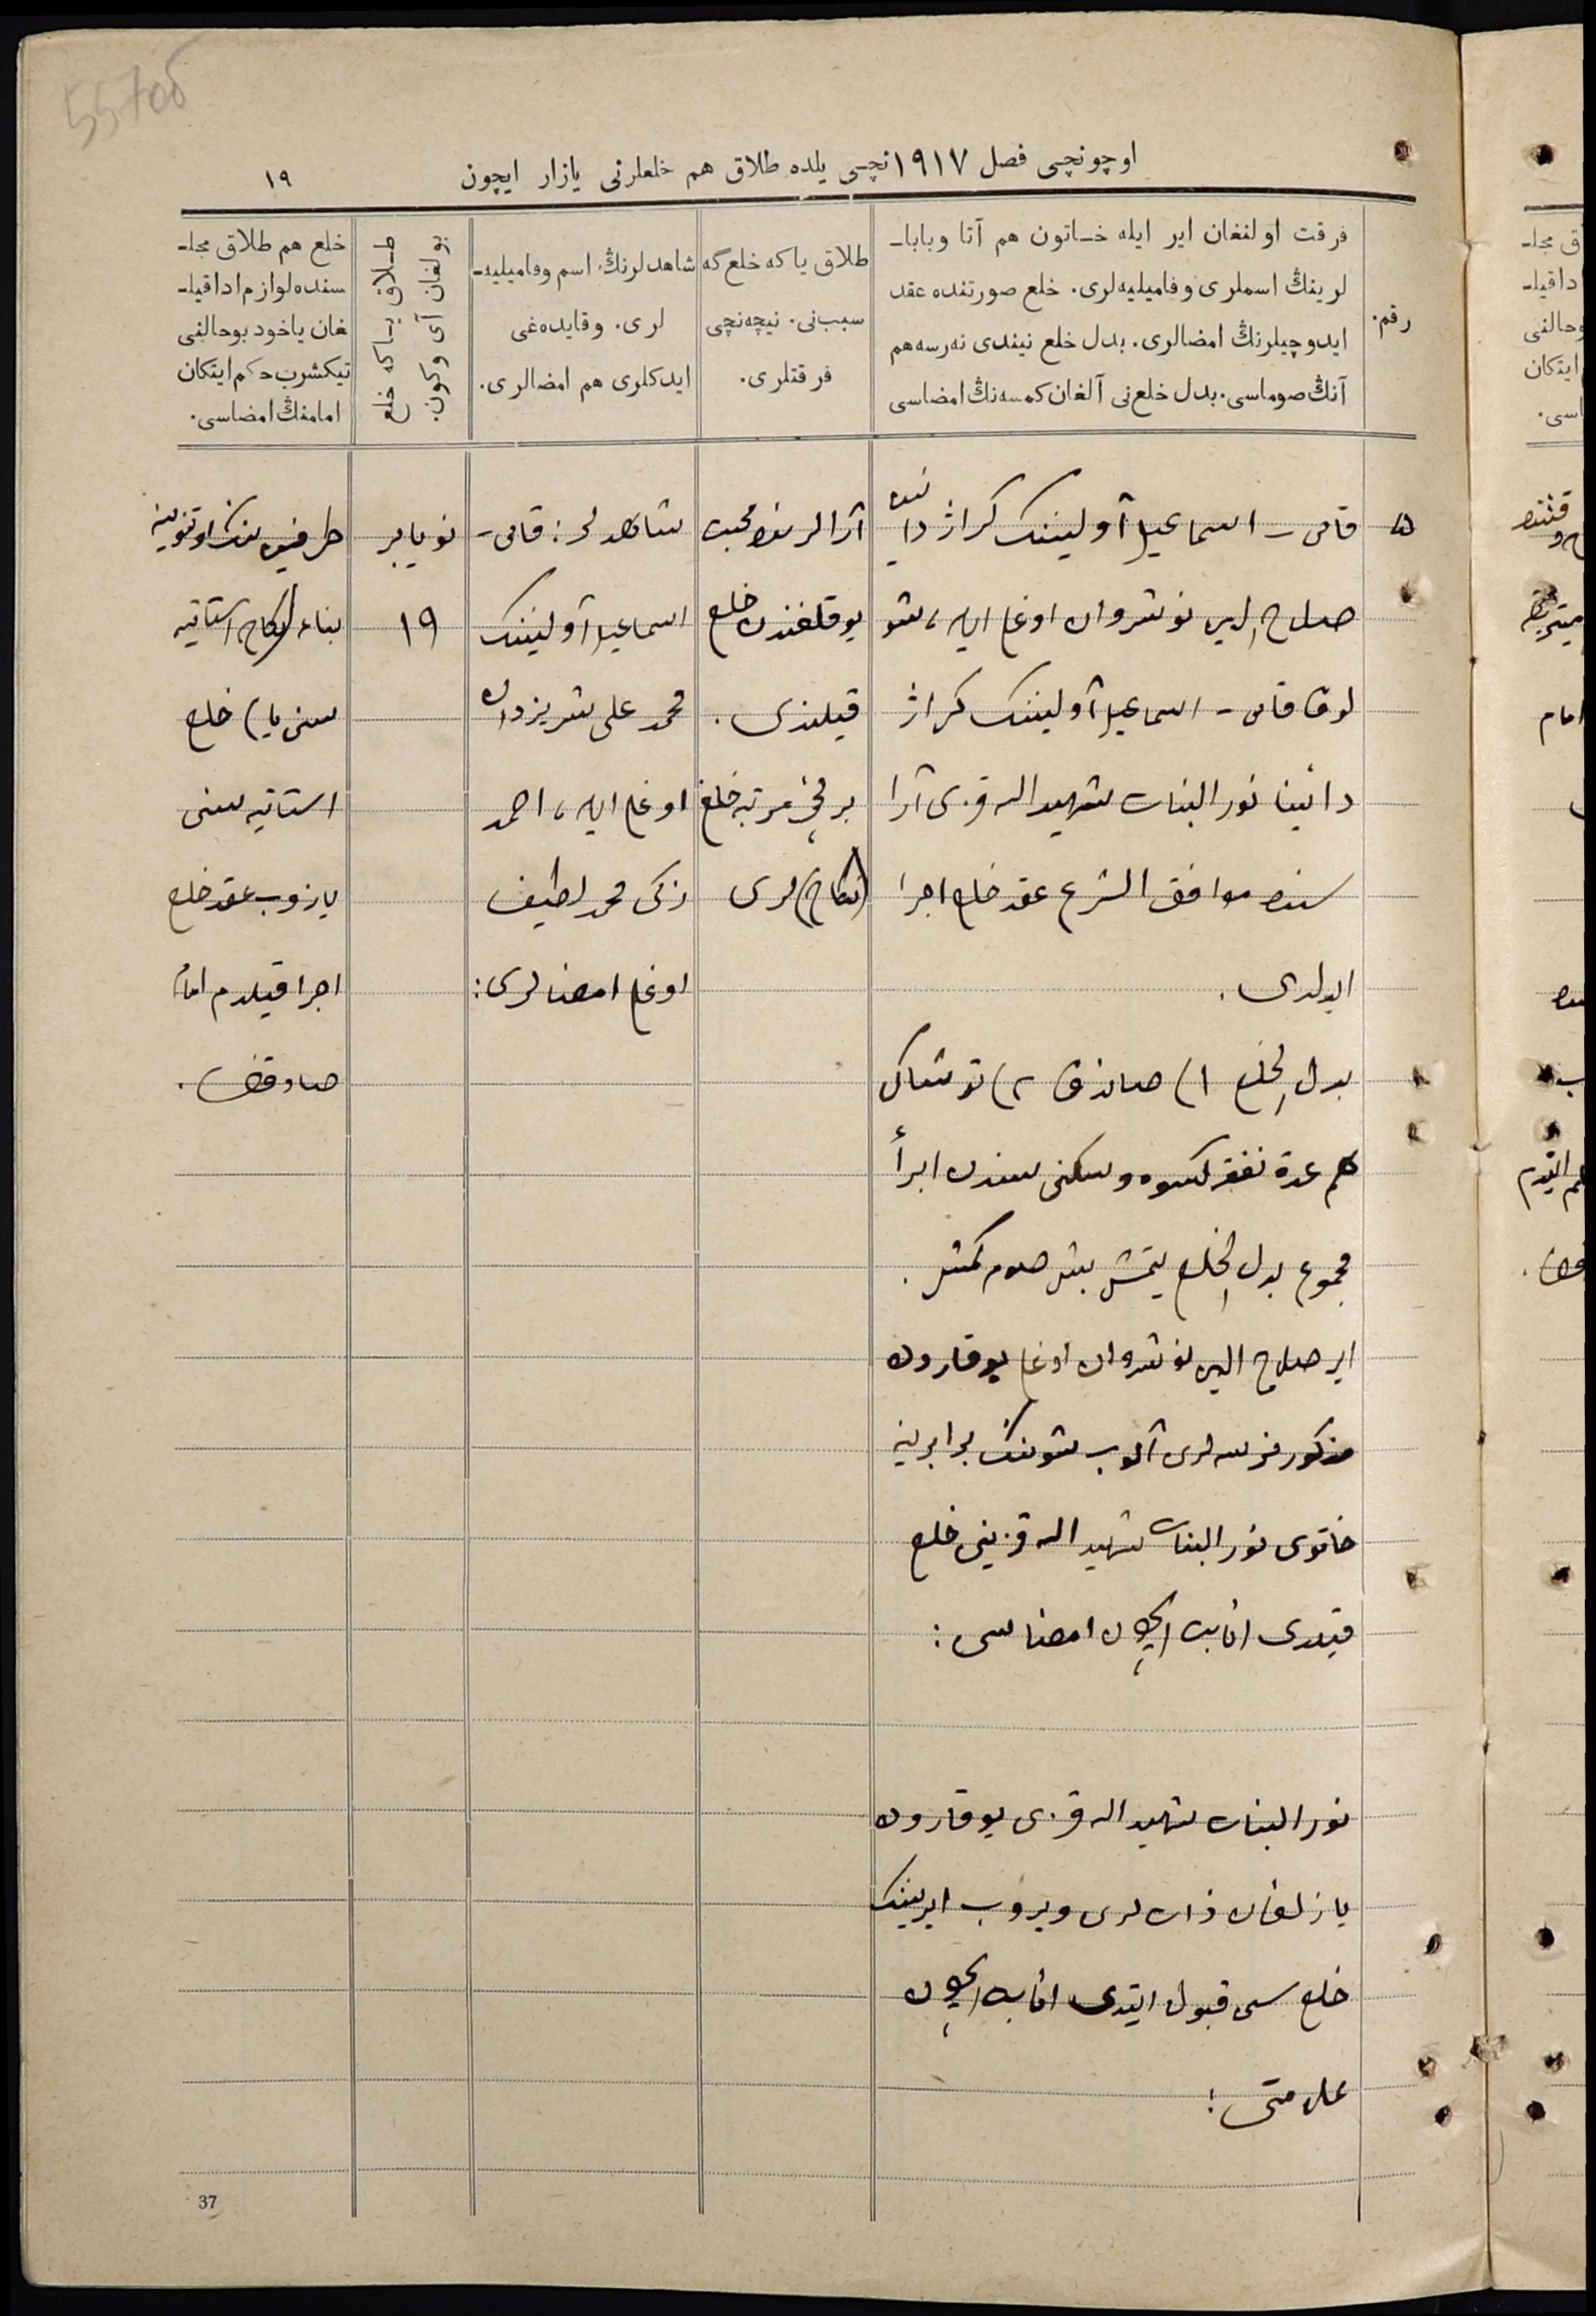 55 об
اوچونچی فصل ١٩١٧نچی یلده طلاق هم خلعلرنی یازار ایچون
١٩
رقم.
فرقت اولنغان ایر ایله خاتون هم آتا وبابا-
لرینڭ اسملری وفامیلیه‌لری. خلع صورتنده عقد
ایدوچیلرنڭ امضالری. بدل خلع نیندی نه‌رسه هم
آنڭ صوماسی. بدل خلع‌نی آلغان کمسه‌نڭ امضاسی
طلاق یاکه خلع‌گه
سبب نی. نیچه‌نچی
فرقتلری.
شاهدلرنڭ اسم وفامیلیه-
لری. وقایده‌غی
ایدکلری هم امضالری.
طلاق یاکه خلع
بولغان آی وکون.
خلع هم طلاق مجلـ
سنده لوازم اداقیلـ
غان یاخود بوحالنی
تیکشرب حکم ایتکان
امامنڭ امضاسی.
٥
قاس - اسماعیل آولیننک کراژدانینه
صلاح الدین نوشروان اوغلی ایله، شو
لوق قاس - اسماعیل آولیننک کراژ
دانینا نور البنات شهید الله قزی آرا
سنده موافق الشرع عقد خلع اجرا
ایدلدی.
بدل الخلع ١) صاندق ٢) توشاک
هم عدة نفقه کسوه وسکنی سندن ابرأ
مجموع بدل الخلع یتمش بیش صوم کمش.
ایر صلاح الدین نوشروان اوغلی یوقاروده
مذکور نرسه لری آلوب شوننک برابرینه
خاتونی نور البنات شهید الله قزینی خلع
قیلدی اثابت ایچون امضاسی:
نور البنات شهید الله قزی یوقاروده
یازلغان ذات لری ویروب ایریننک
خلع سی قبول ایتدی اثابت ایچون
علامتی:
آرالرنده محبت
یوقلغندن خلع
قیلندی.
برنجی مرتبه خلع
(نکاح) لری
شاهدلر: قاس-
اسماعیل آولیننک
محمد علی شریزدان
اوغلی ایله، احمد
زکی محمد لطیف
اوغلی امضالری:
نویابر
١٩
طرفینننک اوتونوینه
بناء (نکاح استاتیه
سنی یا) خلع
استاتیه سنی
یازوب عقد خلع
اجرا قیلدم امام
37